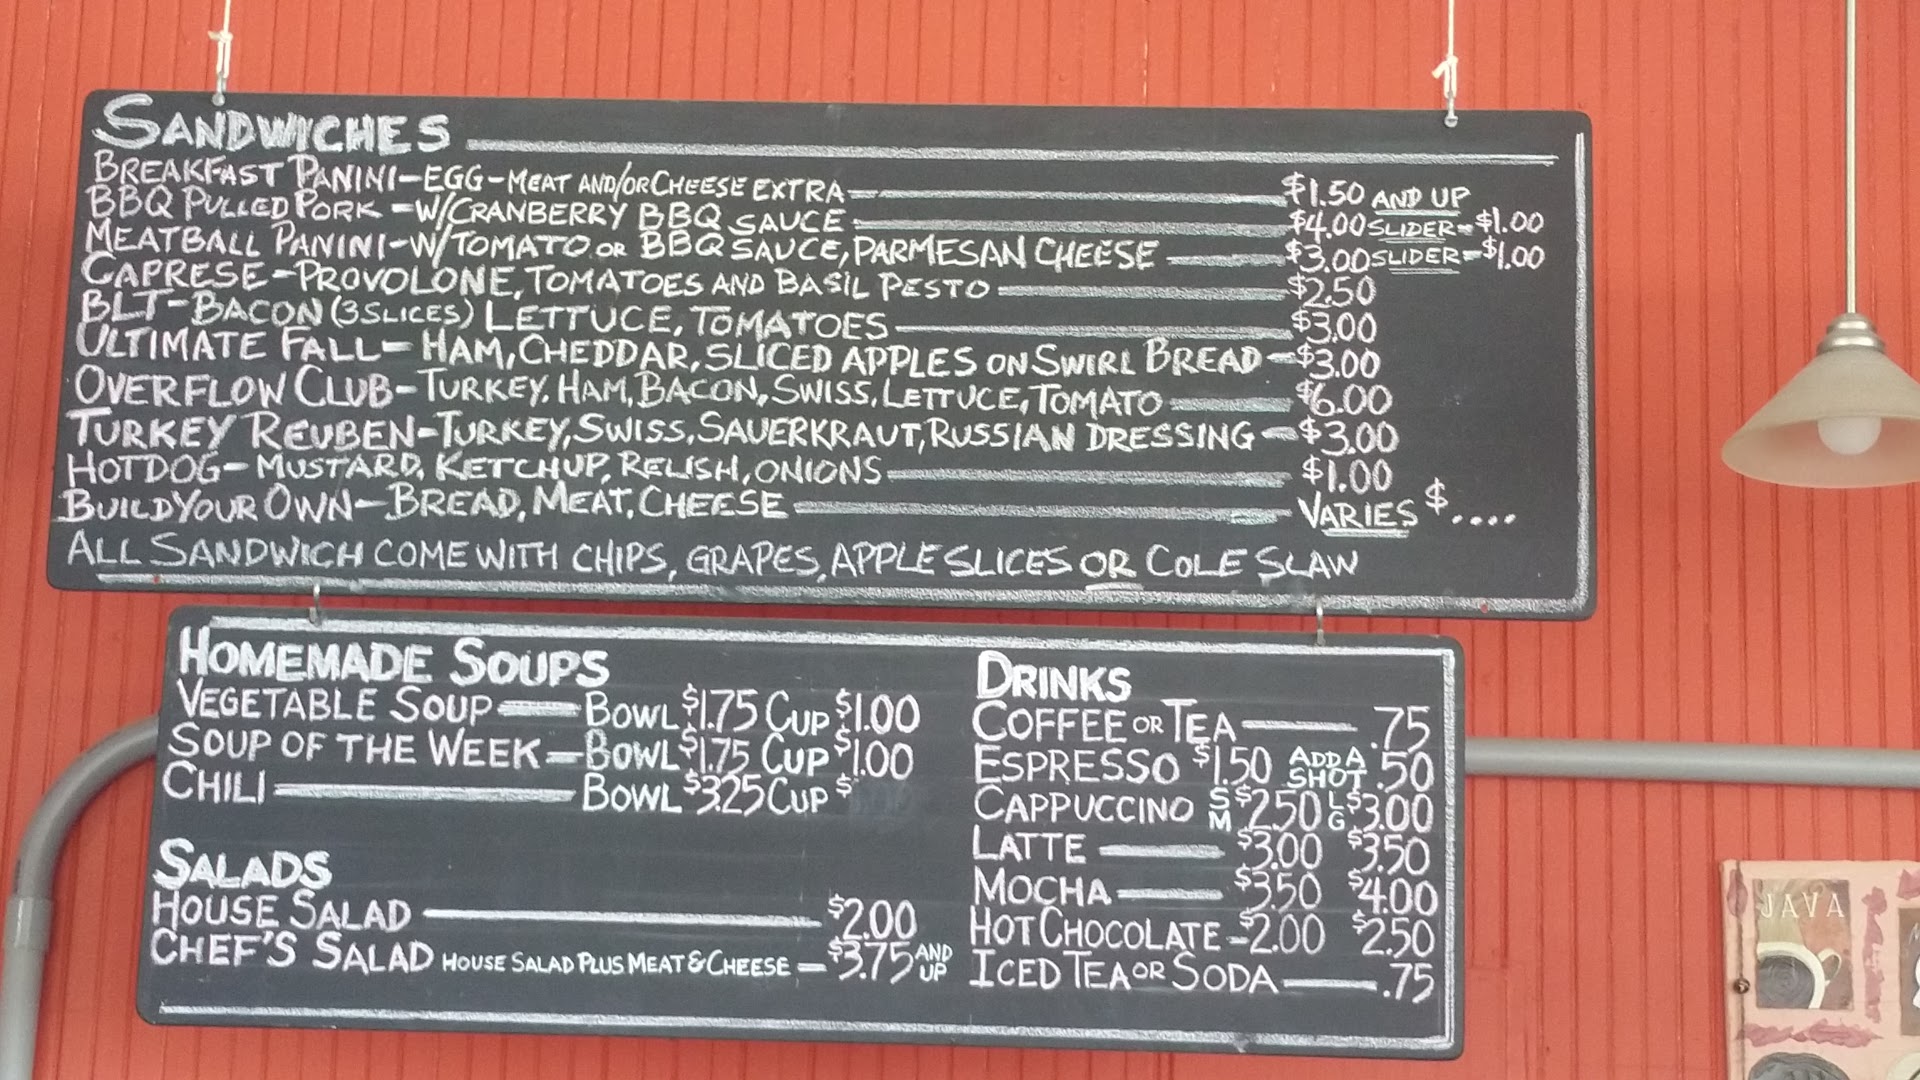 SANDWICHES
BREAKFAST PANINI-EGG-MEAT AND/OR CHEESE EXTRA $1.50 AND UP
BBQ PULLED PORK-W/CRANBERRY BBQ SAUCE $4.00 SLIDER-$1.00
MEATBALL PANINI-W/TOMATO OR BBQ SAUCE, PARMESAN CHEESE $3.00 SLIDER-$1.00
CAPRESE-PROVOLONE, TOMATOES AND BASIL PESTO $2.50
BLT-BACON (3 SLICES) LETTUCE, TOMATOES $3.00
ULTIMATE FALL-HAM, CHEDDAR, SLICED APPLES ON SWIRL BREAD-$3.00
OVERFLOW CLUB-TURKEY. HAM, BACON, SWISS, LETTUCE, TOMATO $6.00
TURKEY REUBEN-TURKEY, SWISS, SAUERKRAUT, RUSSIAN DRESSING-$3.00
HOTDOG-MUSTARD, KETCHUP, RELISH, ONIONS $1.00
BUILD YOUR OWN-BREAD, MEAT, CHEESE VARIES $....
ALL SANDWICH COME WITH CHIPS, GRAPES, APPLE SLICES OR COLE SLAW
HOMEMADE SOUPS
VEGETABLE SOUP BOWL $1.75 CUP $1.00
SOUP OF THE WEEK-BOWL $1.75 CUP $1.00
CHILI BOWL $3.25 CUP $
SALADS
HOUSE SALAD $2.00
CHEF'S SALAD HOUSE SALAD PLUS MEAT & CHEESE-$3.75 AND UP
DRINKS
COFFEE OR TEA .75
ESPRESSO $1.50 ADD A SHOT .50
CAPPUCCINO SM $2.50 LG $3.00
LATTE $3.00 $3.50
MOCHA $3.50 $4.00
HOT CHOCOLATE-$2.00 $2.50
ICED TEA OR SODA .75
JAVA